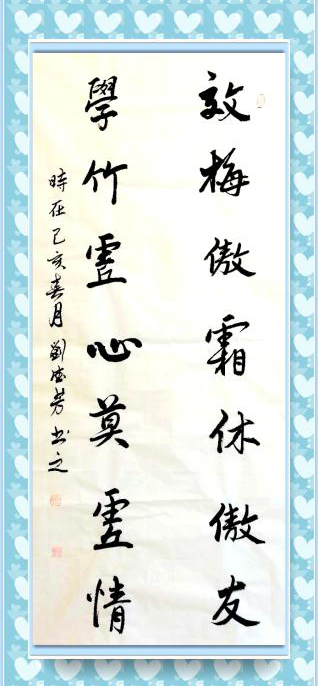 效梅傲霜休傲友
學竹虛心莫虛情
時在己亥春月劉盛芳书之